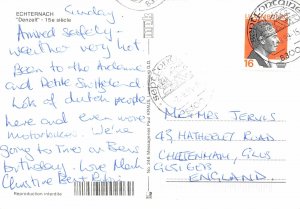 ECHTERNACH
"Denzelt" - 15e siècle
Sunday.
Arrived safely -
weather very hot
Been to the Ardenne
and Petite Switzerland
Lots of dutch people
here and even more
motorbikes. We're
going to Trier on Ben's
birthday. Love Mark
Christine Ben + Robin
Reproduction interdite
mdk
No. 246 Messageries Paul KRAUS
16
MR + MRS JERVIS
43, HATHERLEY ROAD
CHELTENHAM, GLOS
GL51 6EB
ENGLAND